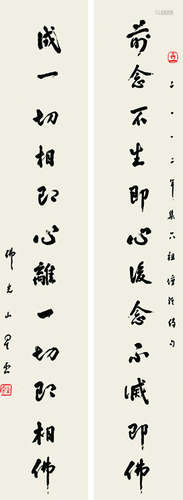 二〇一二年集六祖壇經偈句
前念不生即心後念不滅即佛
成一切相即心離一切即相佛
佛光山星雲